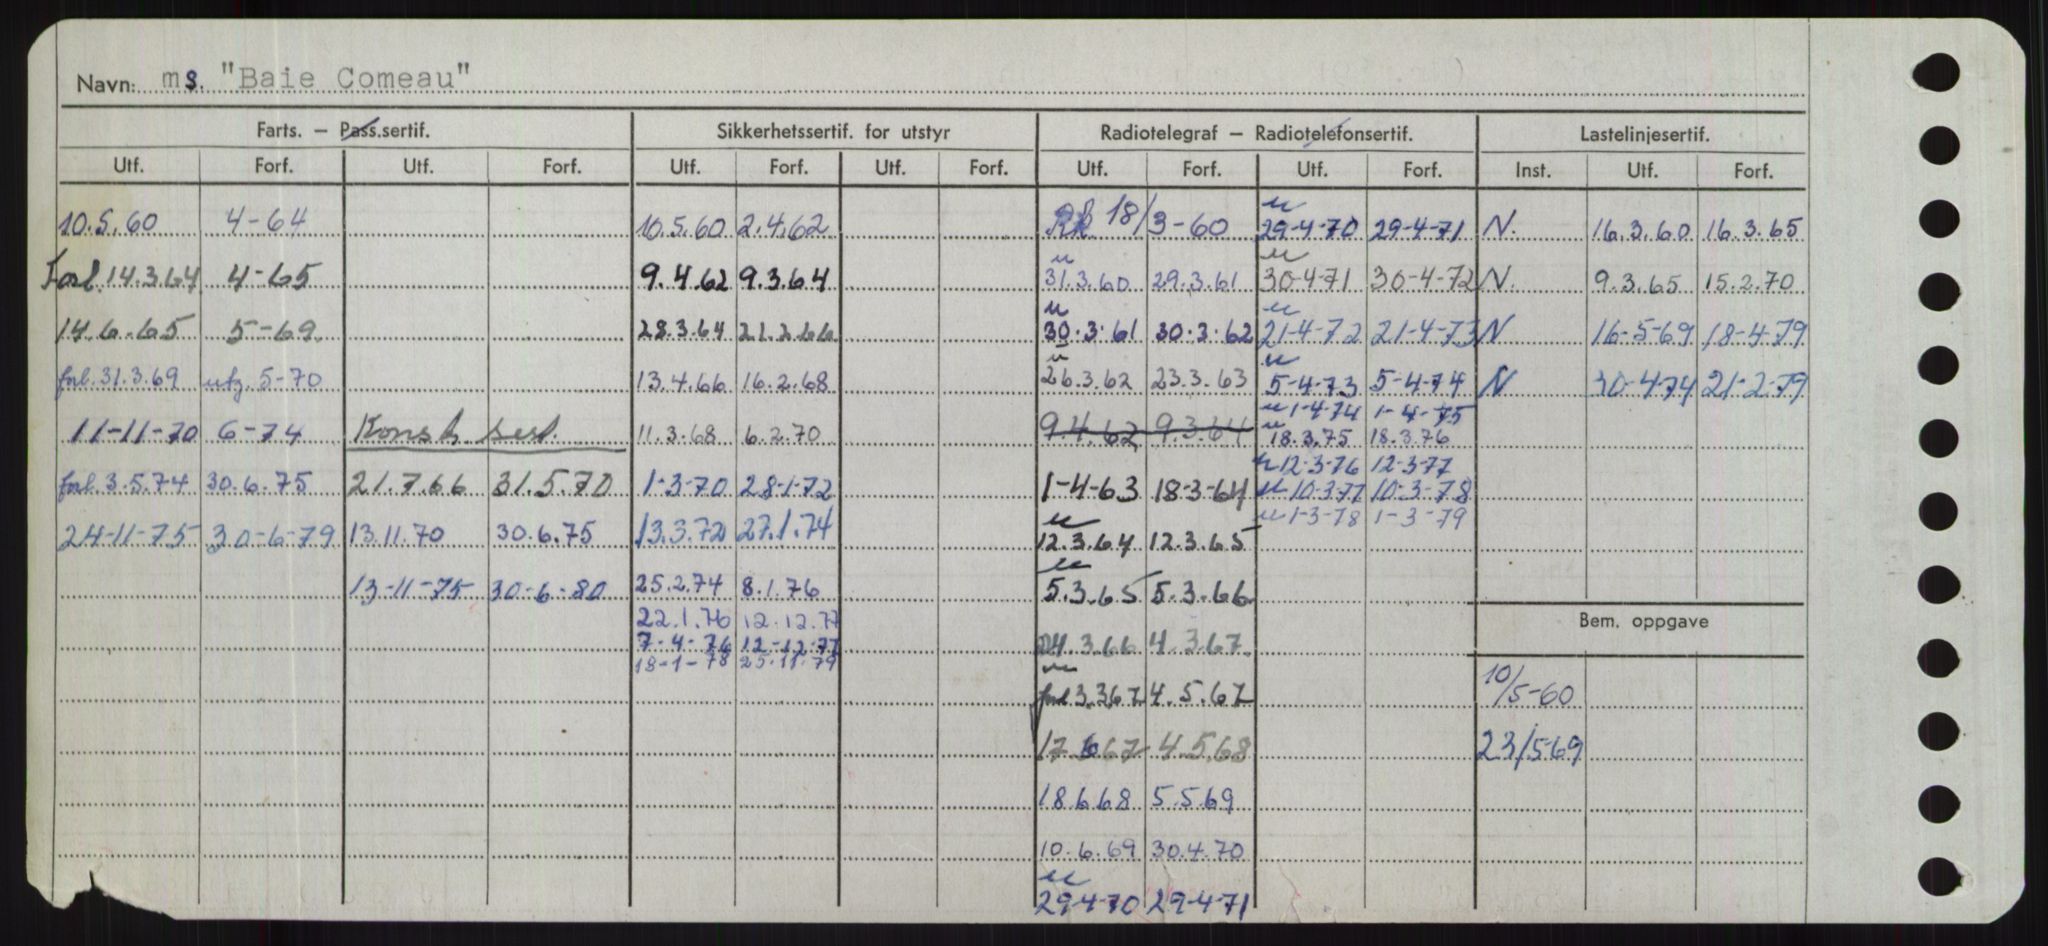 Navn: ms. "Baie Comeau"
Farts. — Pass.sertif. Sikkerhetssertif. for utstyr Radiotelegraf — Radiotelefonsertif. Lastelinjesertif.
Utf. Forf. Utf. Forf. Utf. Forf. Utf. Forf. Utf. Forf. Utf. Forf. Inst. Utf. Forf.
10.5.60 4-64 10.5.60 2.4.62 18/3-60 29-4-70 29-4-71 N. 16.3.60 16.3.65
Forl. 14.3.64 4-65 9.4.62 9.3.64 31.3.60 29.3.61 30-4-71 30-4-72 N. 9.3.65 15.2.70
14.6.65 5-69 28.3.64 21.2.66 30.3.61 30.3.62 21-4-72 21-4-73 N 16-5-69 18-4-79
forl. 31.3.69 utg. 5-70 13.4.66 16.2.68 26.3.62 23.3.63 5-4-73 5-4-74 N 30-4-74 21-2-79
1-4-74 1-4-75
11-11-70 6-74 Konst. sert. 11.3.68 6.2.70 9.4.62 9.3.64 18.3.75 18.3.76
12-3-76 12-3-77
forl. 3.5.74 30.6.75 21.7.66 31.5.70 1-3-70 28-1-72 1-4-63 18-3-64 10-3-77 10-3-78
1-3-78 1-3-79
24-11-75 30-6-79 13.11.70 30.6.75 13.3.72 27.1.74 12.3.64 12.3.65
13-11-75 30-6-80 25.2.74 8.1.76 5.3.65 5.3.66
22.1.76 12.12.77 Bem. oppgave
7-4-76 12-12-77 24.3.66 4.3.67
18-1-78 25.11.79
forl 3.3.67 4.5.67 10/5-60
17.6.67 4.5.68 23/5-69
18.6.68 5.5.69
10.6.69 30.4.70
29-4-70 29-4-71